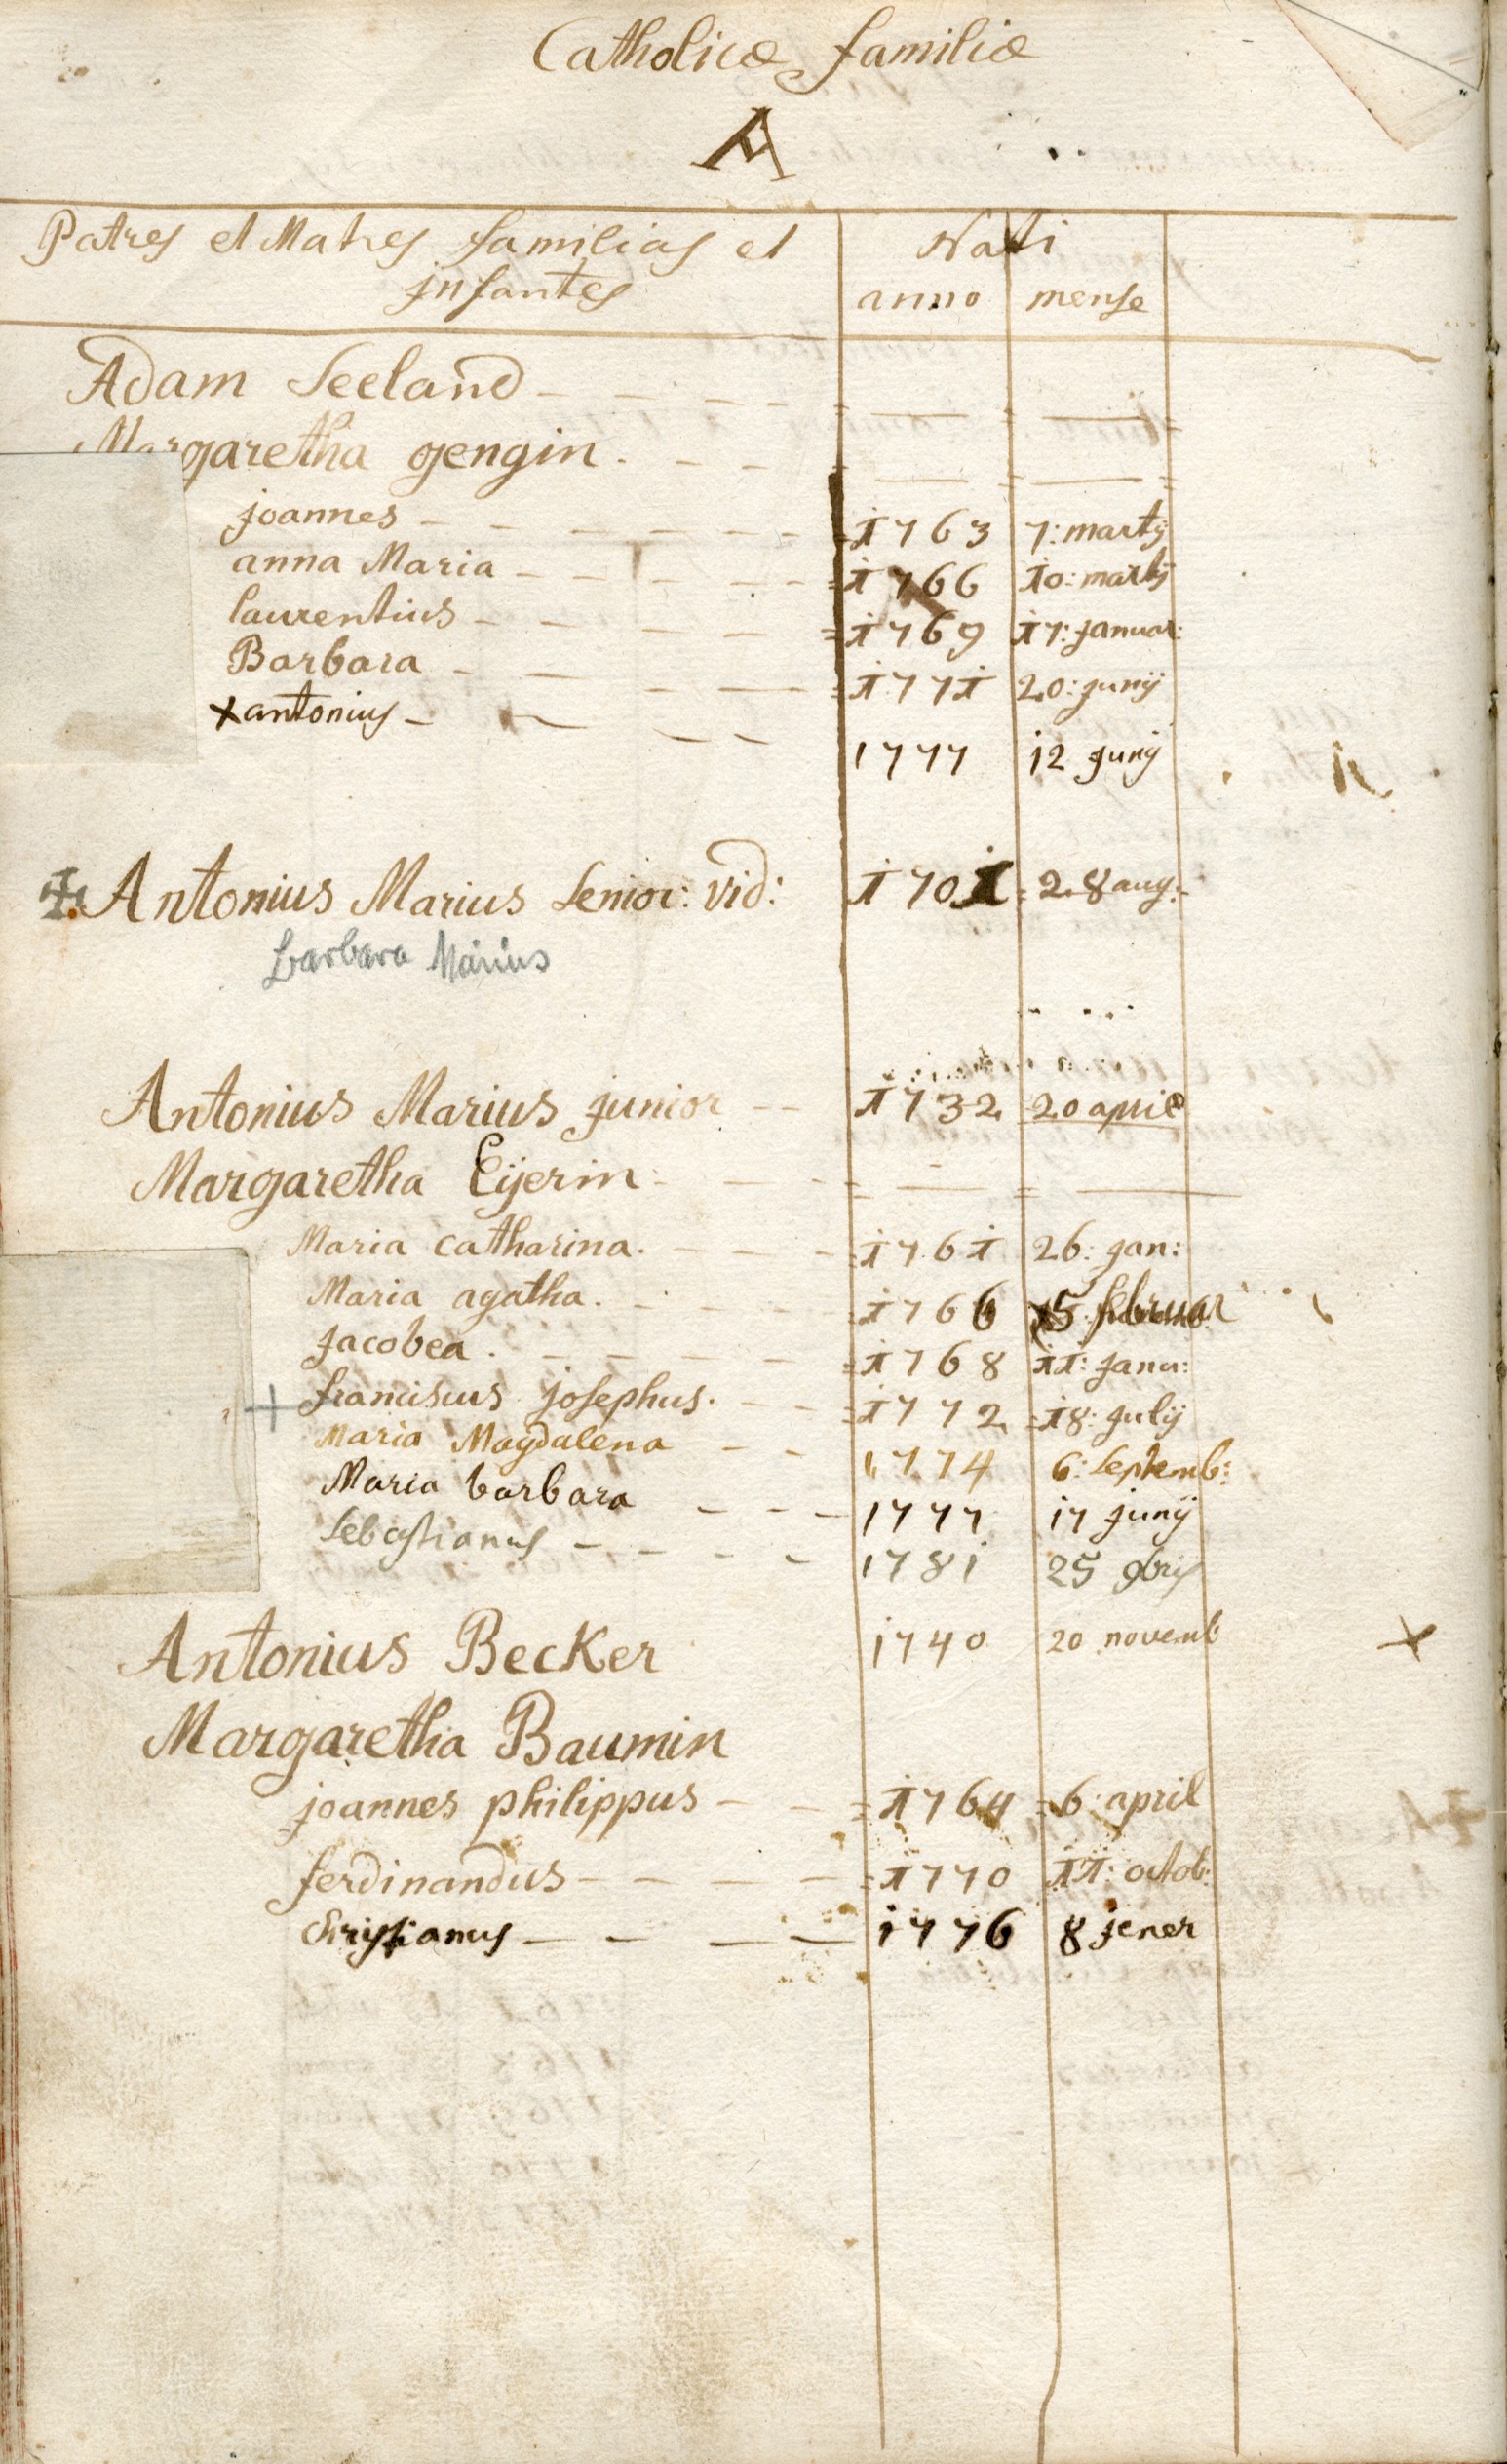 Catholicæ familiæ
A
Patres et Matres familias et Nati
infantes anno mense
Adam Seeland
Margaretha gengin.
joannes 1763 7: martij
anna Maria 1766 10: martij
laurentius 1769 17: januar:
Barbara 1771 20: junij
x antonius 1777 12 junij
Antonius Marius Senior: vid: 1701 28 aug:
barbara Marius
Antonius Marius junior 1732 20 april
Margaretha Eijerin
Maria catharina. 1761 26: jan:
Maria agatha. 1766 15 februar
jacobea. 1768 11: janu:
+ franciscus josephus. 1772 18: julij
Maria Magdalena 1774 6: Septemb:
Maria barbara 1777 17 junij
Sebastianus 1781 25 9bris
Antonius Becker 1740 20 novemb x
Margaretha Baumin
joannes philippus 1764 6: april
ferdinandus 1770 11: octob:
Christianus 1776 8 jener